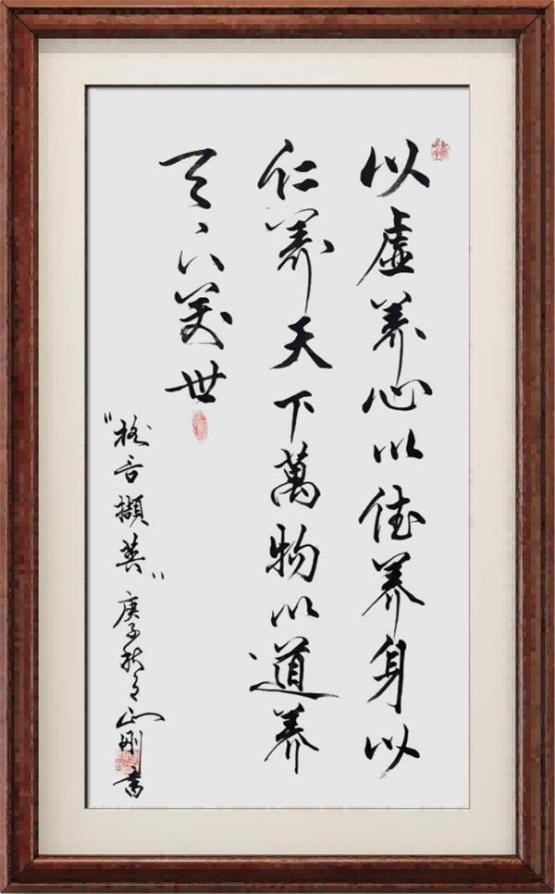 以虚养心以德养身以
仁养天下萬物以道养
天下萬世
"格言擷英"庚子秋月刚書